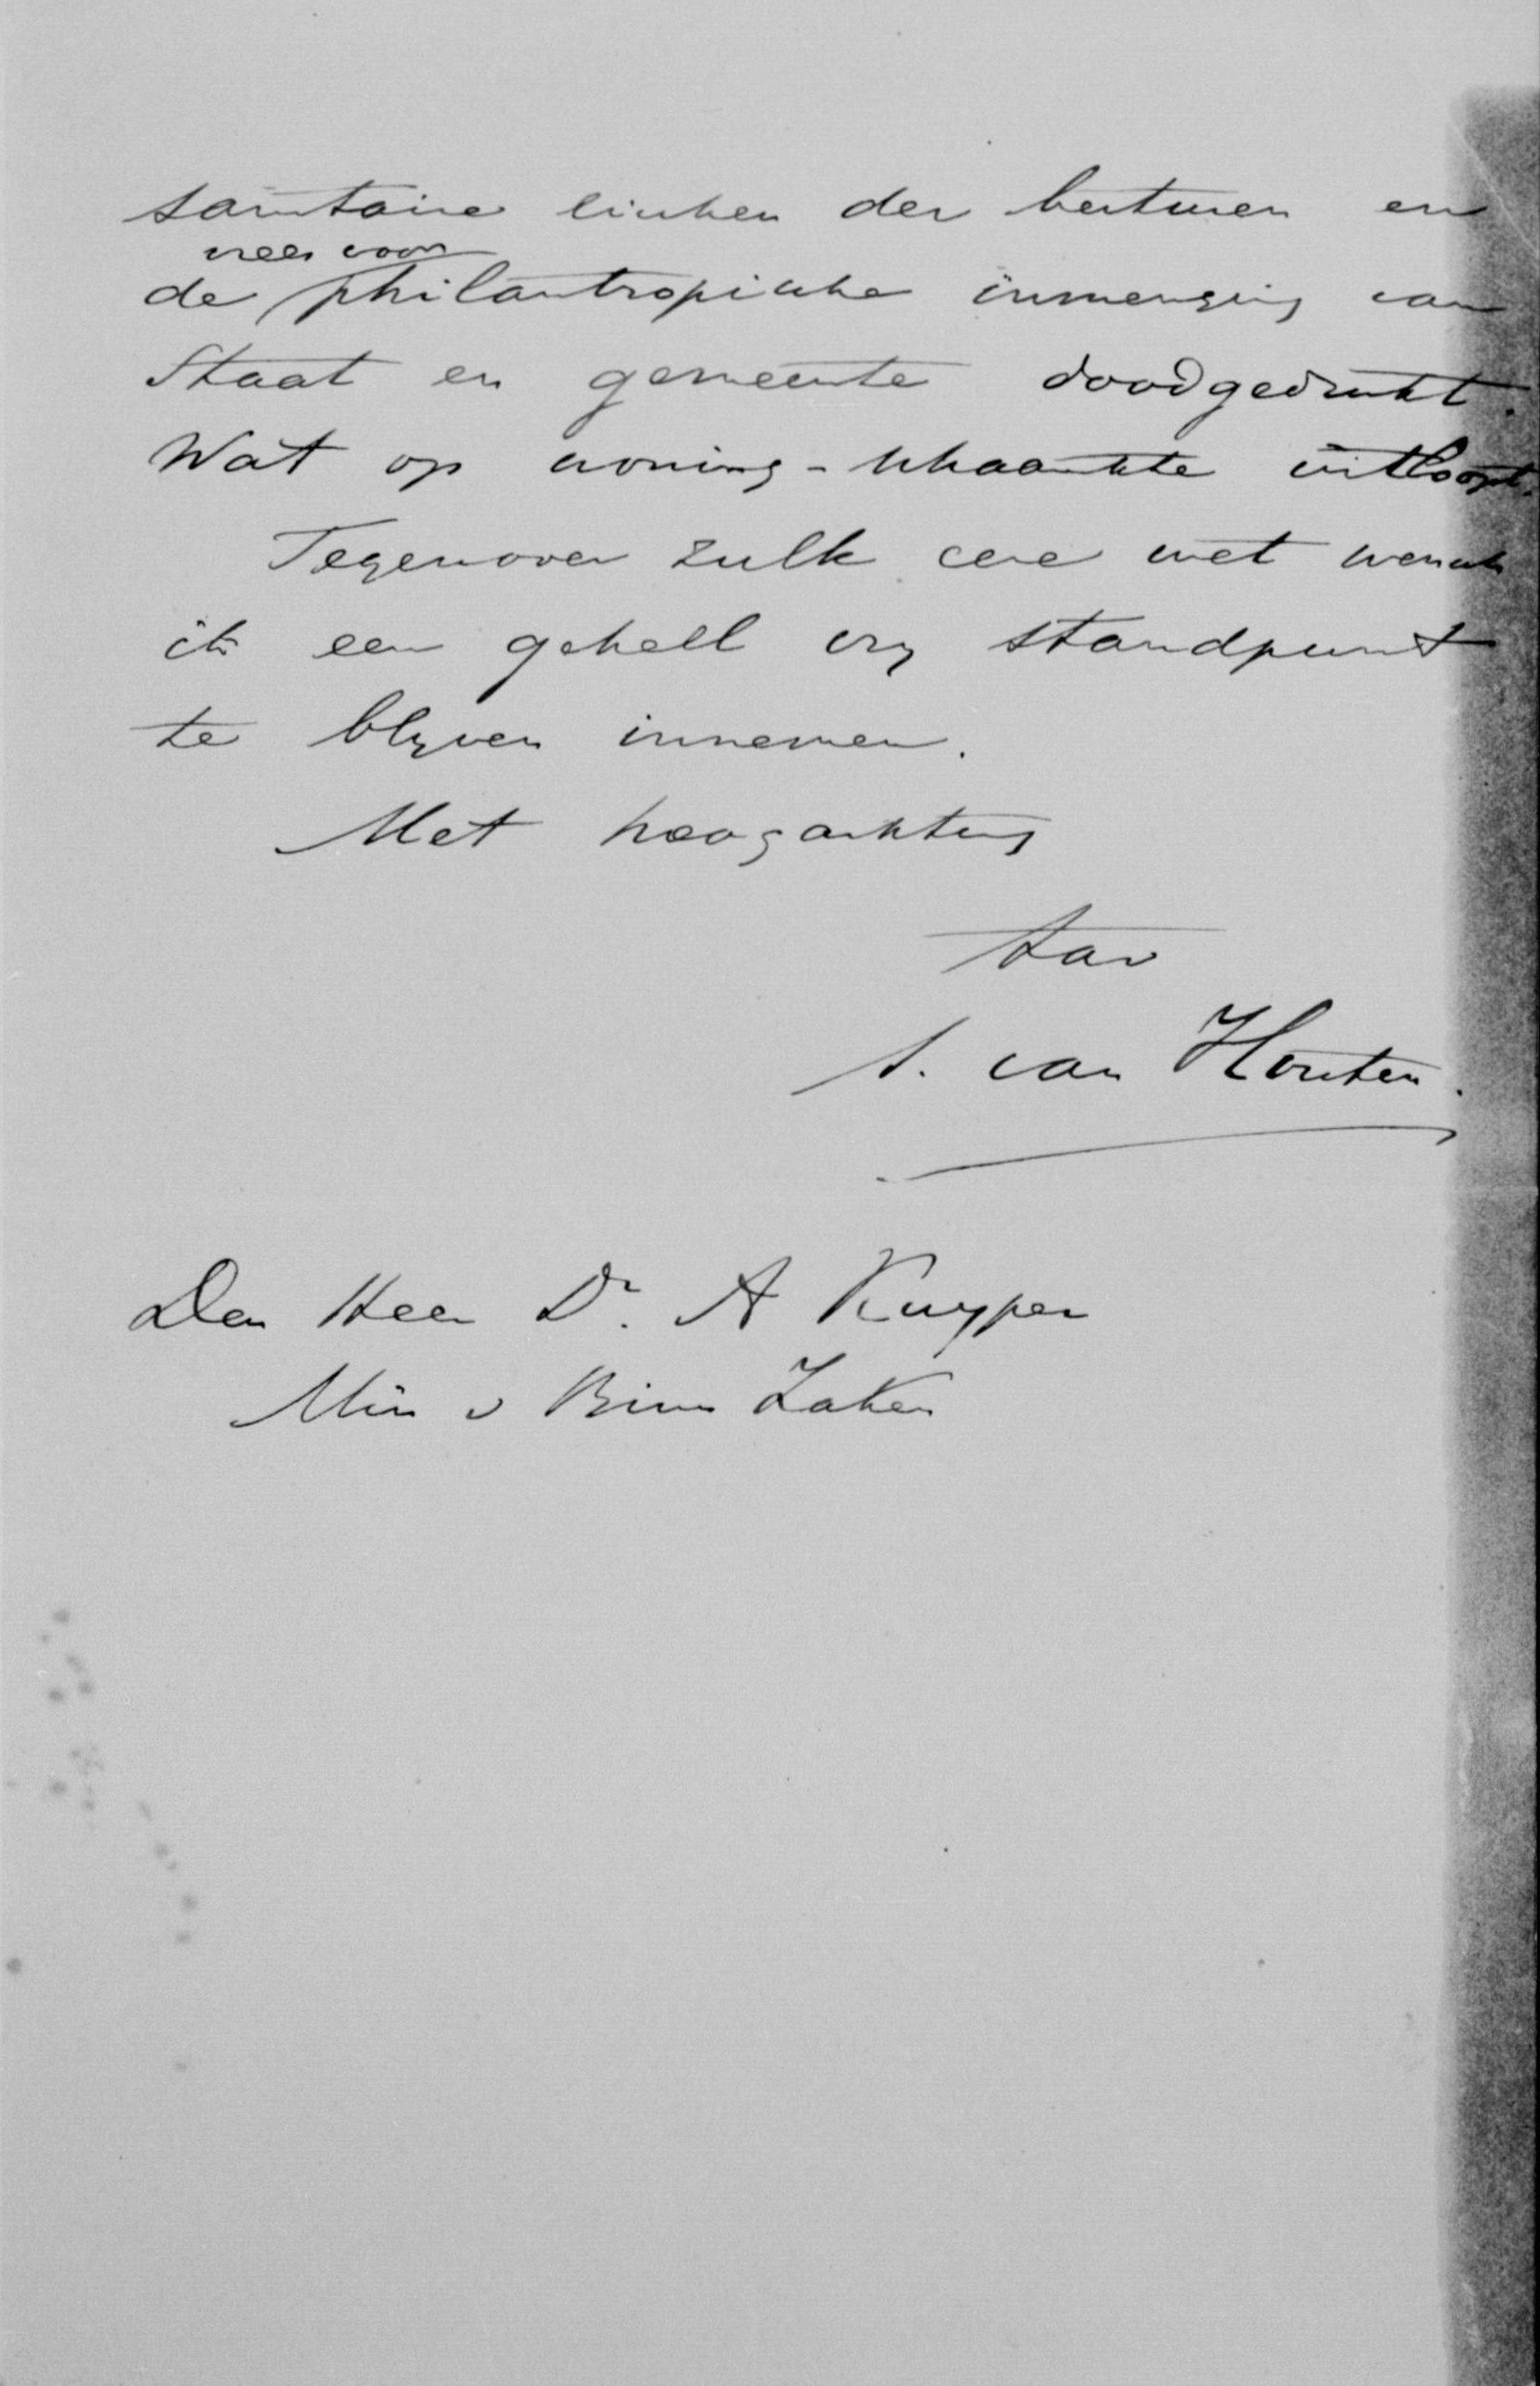 sanitaire eischen der besturen en
vrees voor
de philantropische inmenging van
Staat en gemeente doodgedrukt.
Wat op woning-schaarschte uitloopt.
Tegenover zulk eene wet wensch
ik een geheel vrij standpunt
te blijven innemen.
Met hoogachting
S. van Houten.
Den Heer Dr. A Kuyper
Min v Binn Zaken